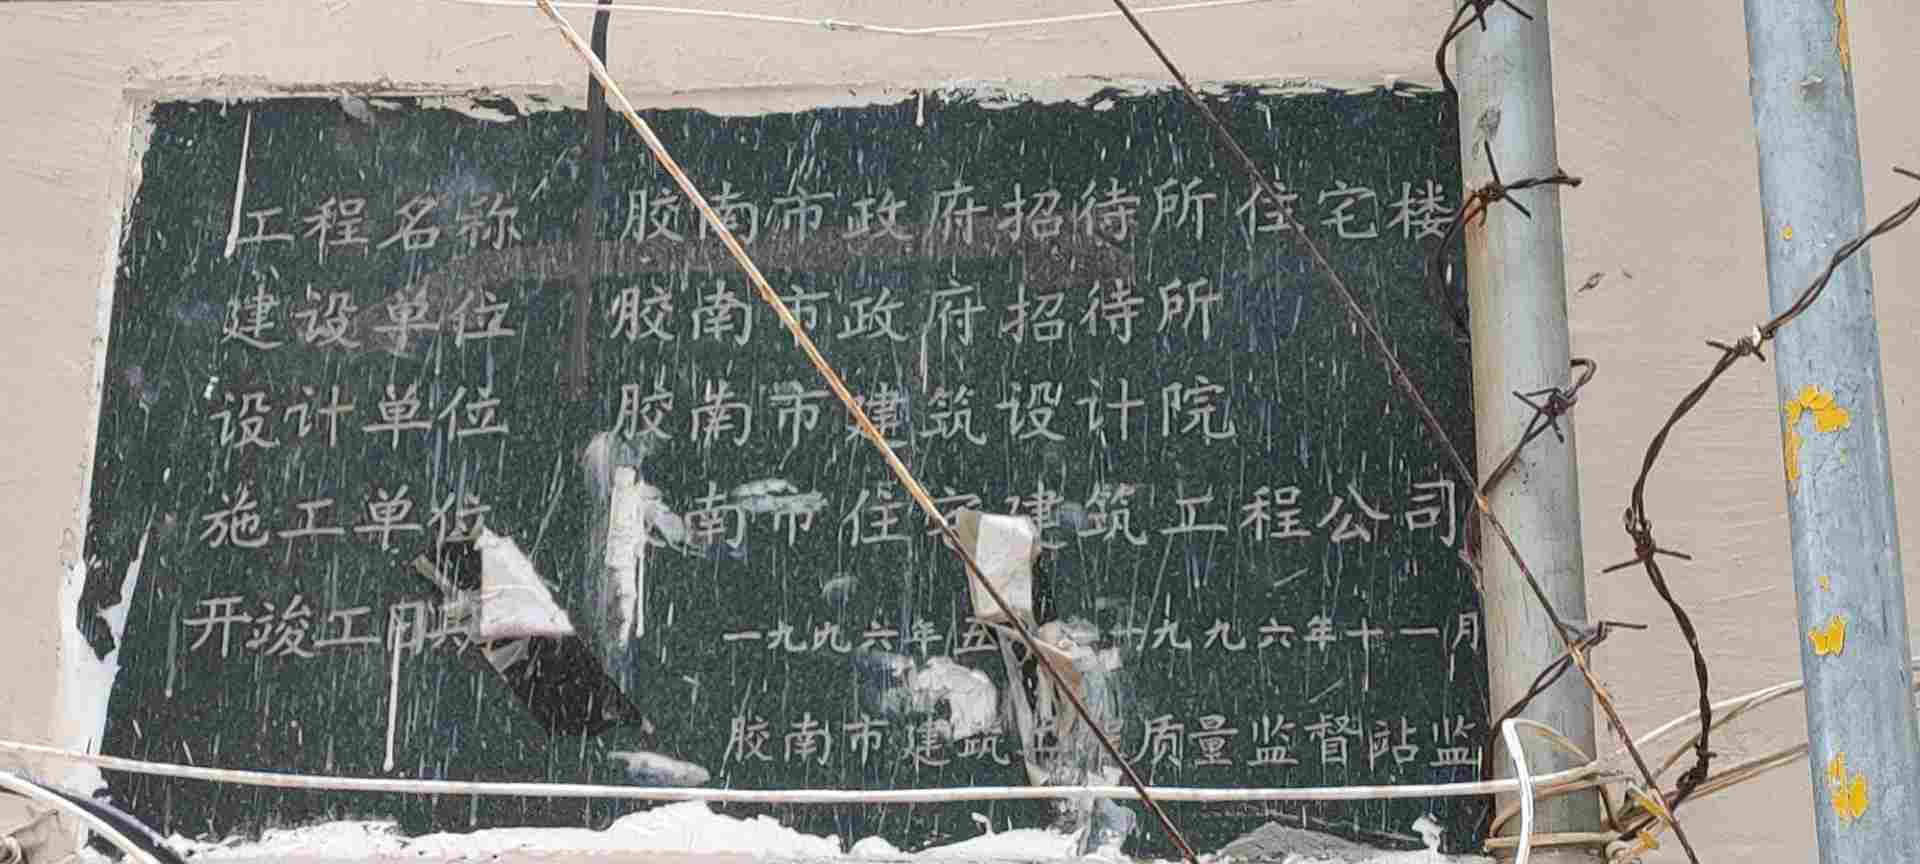 工程名称 胶南市政府招待所住宅楼
建设单位 胶南市政府招待所
设计单位 胶南市建筑设计院
施工单位 南市住宅建筑工程公司
开竣工日期 一九九六年五 一九九六年十一月
胶南市建筑工 质量监督站监